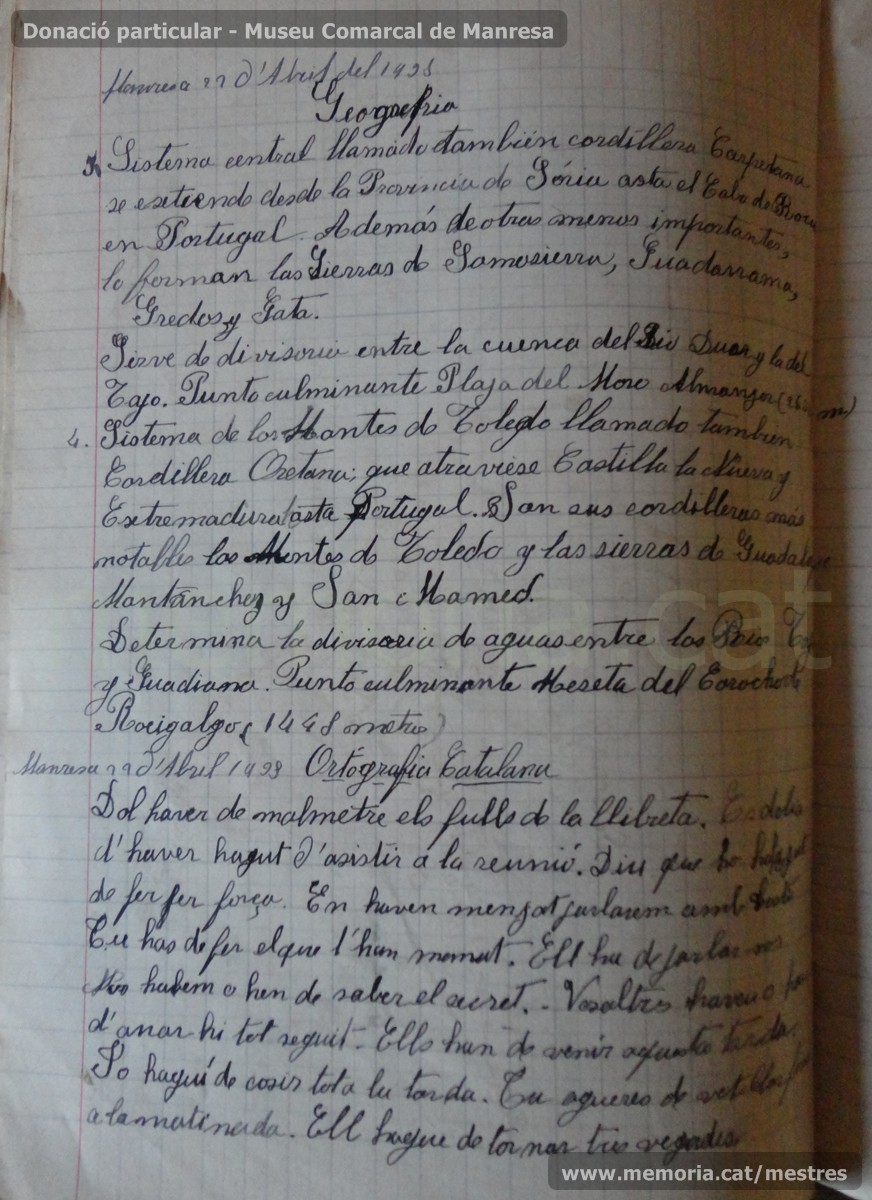 Donació particular - Museu Comarcal de Manresa
Manresa 22 d'Abril del 1938
Geografia
3. Sistema central llamado también cordillera Carpetana
se extiende desde la Provincia de Sória asta el Cabo de Roca
en Portugal. Además de otras menos importantes,
lo forman las Sierras de Somosierra, Guadarrama,
Gredos y Gata.
Sirve de divisoria entre la cuenca del Rio Duero y la del
Tajo. Punto culminante Plaja del Moro Almanzor
4. Sistema de los Montes de Toledo llamado también
Cordillera Oretana; que atraviese Castilla la Nueva y
Extremadura asta Portugal. Son sus cordilleras más
notables los Montes de Toledo y las sierras de
Montánchez y San Mamed.
Determina la divisoria de aguas entre los Rios
y Guadiana. Punto culminante Meseta del
Rocigalgo (1448 metros)
Manresa 22 d'Abril 1938 Ortógrafia Catalana
Dol haver de malmetre els fulls de la llibreta.
d'haver hagut d'asistir a la reunió. Diu que ho
de fer per força. En haven menjat parlarem amb
Tu has de fer el que t'han manat. Ell ha de parlar
habem o hen de saber el secret. - Vosaltres haveu o
d'anar hi tot seguit - Ells han de venir aquesta tarda.
Jo haguí de cosir tota la tarda. Tu agueres de vetllar
a la matinada. Ell hague de tornar tres vegades.
www.memoria.cat/mestres